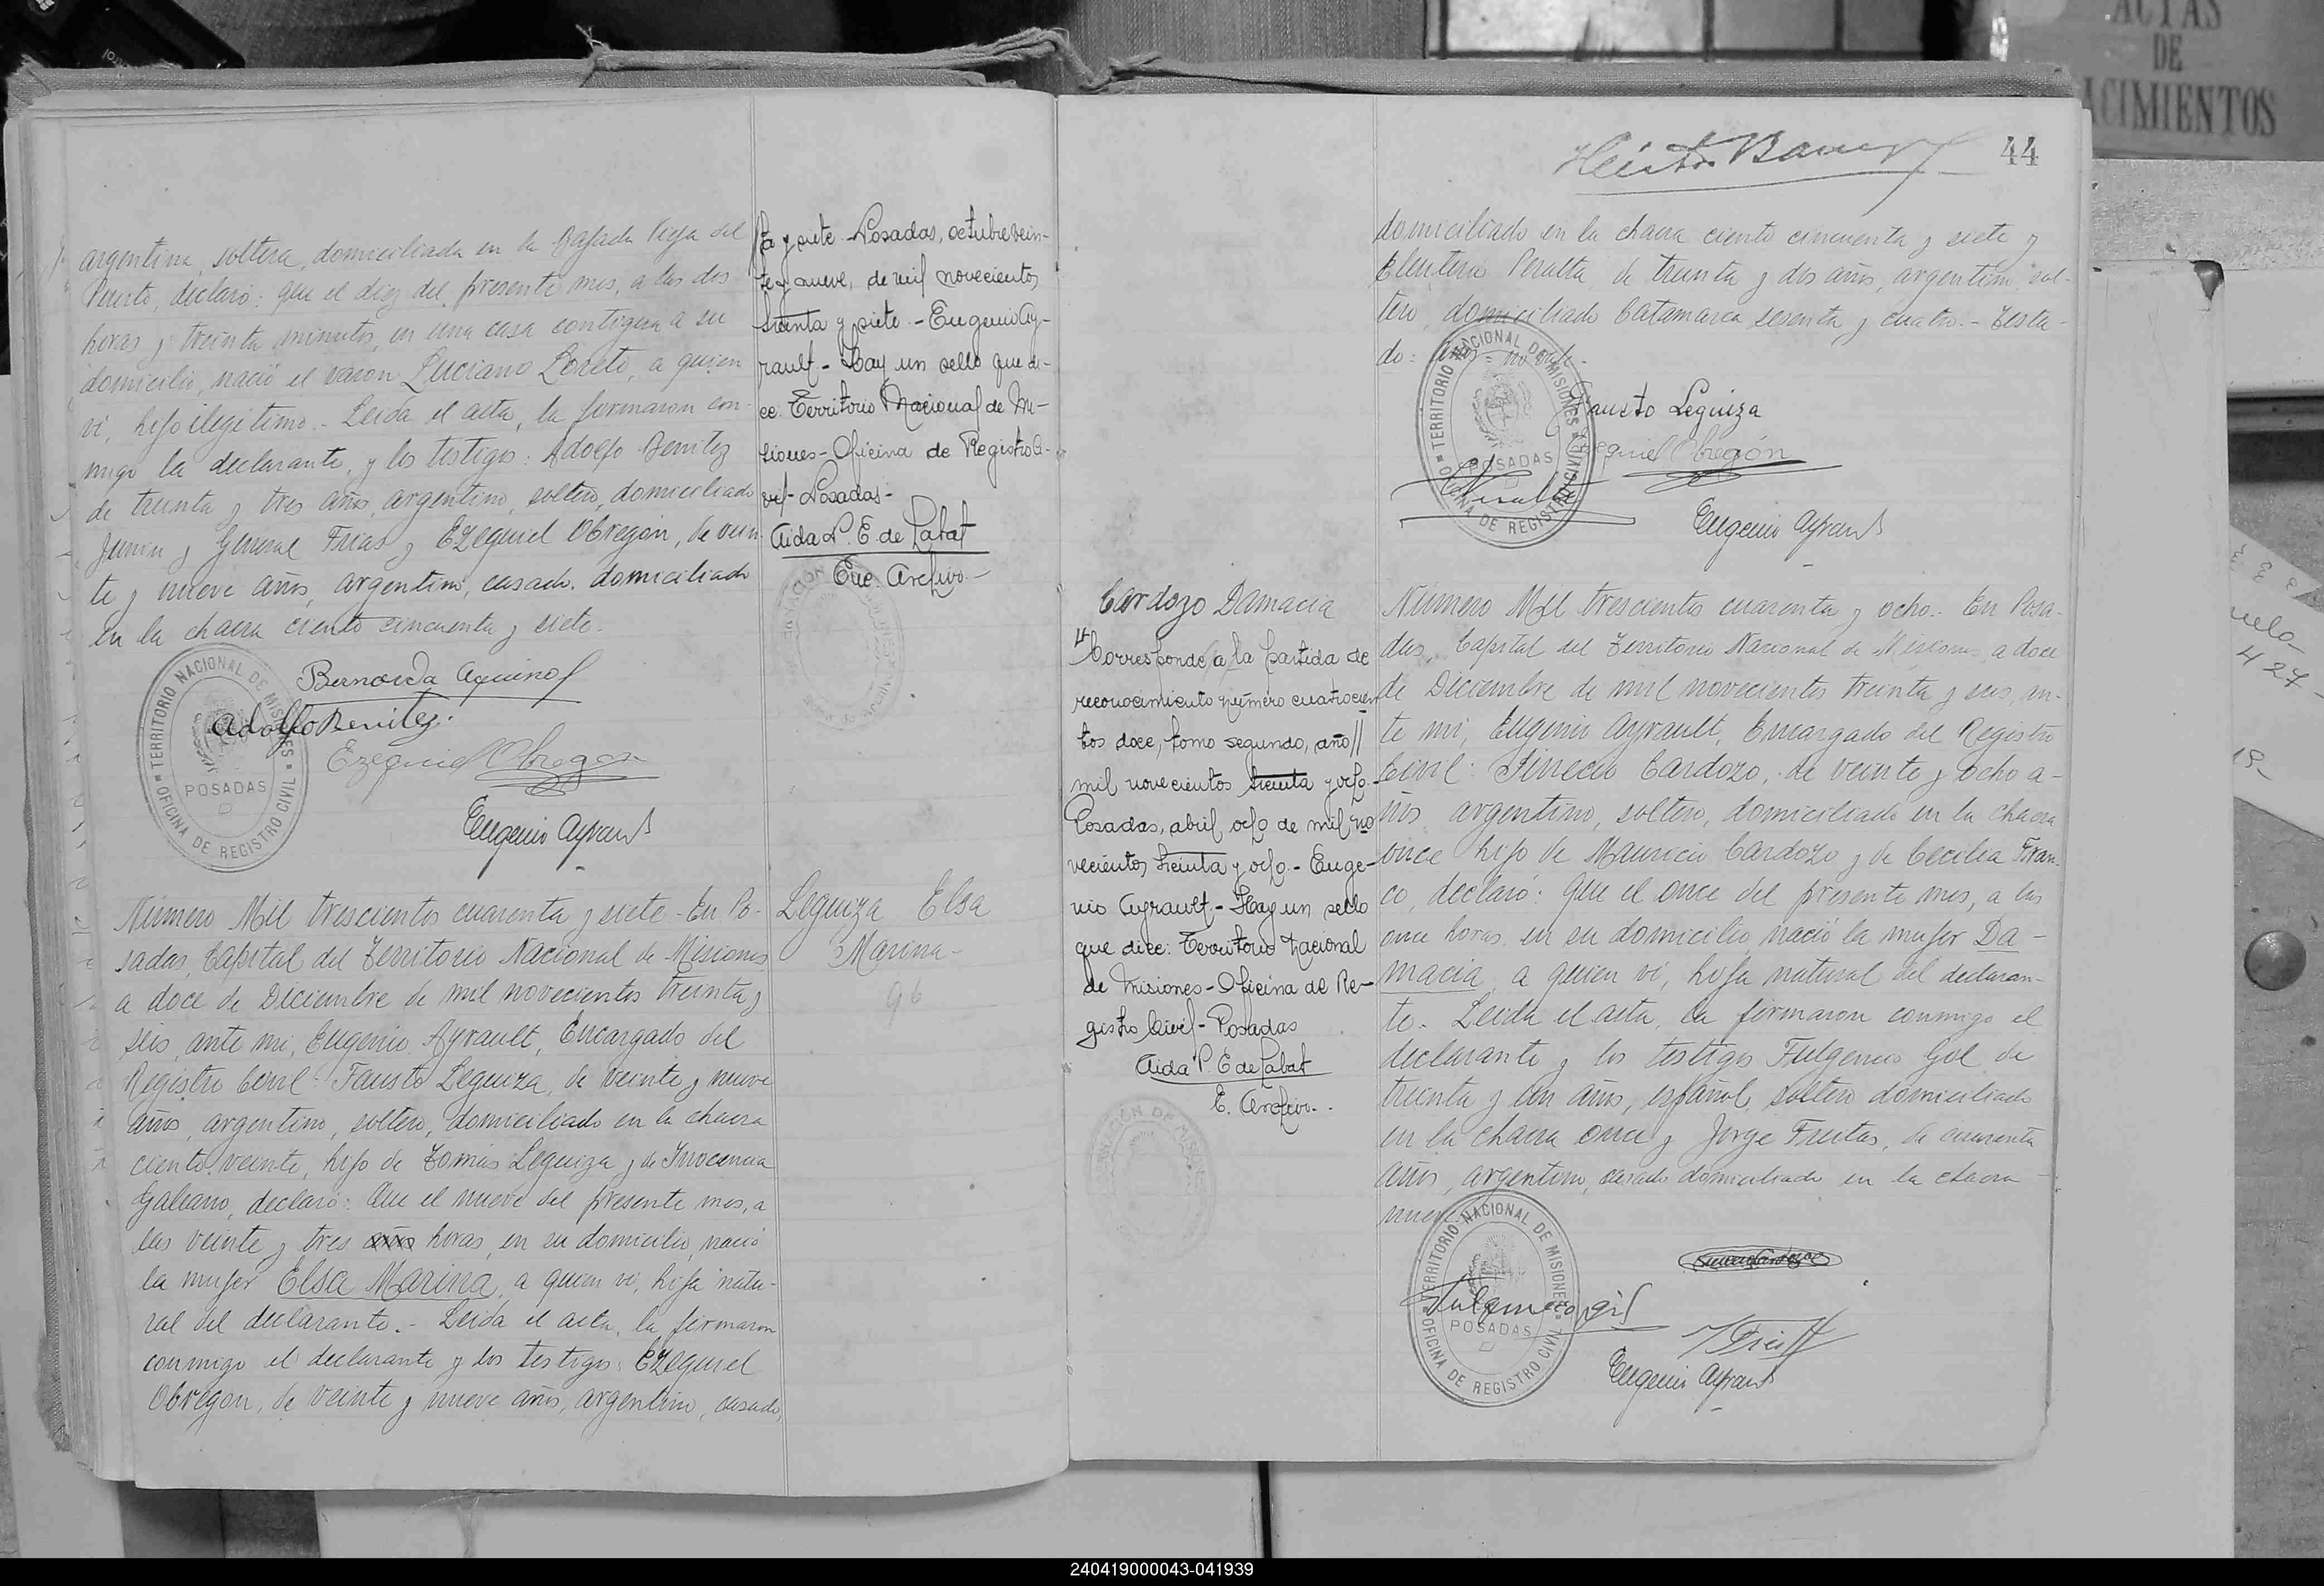 argentina, soltera, domiciliada en la Bajada Vieja del
Puerto, declaró: que el diez del presente mes, a las dos
horas y treinta minutos, en una casa contigua a su
domicilio, nació el varon Luciano Loreto, a quien
vi, hijo ilegitimo.- Leida el acta, la firmaron con-
migo la declarante, y los testigos: Adolfo Benitez
de treinta y tres años, argentino, soltero, domiciliado
Junin y General Frias y Ezequiel Obregón, de vein
te y nueve años, argentino, casado, domiciliado
en la chacra ciento cincuenta y siete.
Bernarda Aquino
Adolfo Benitez.
Ezequiel Obregon
Eugenio Ayrault
TERRITORIO NACIONAL DE MISIONES
POSADAS
OFICINA DE REGISTRO CIVIL
ta y siete - Posadas, octubre vein-
te y nueve, de mil novecientos
treinta y siete. - Eugenio Ay-
rault - Hay un sello que di-
ce: Territorio Nacional de Mi-
siones - Oficina de Registro Ci-
vil - Posadas -
Aida P. E. de Labat
Enc. Archivo.-
Número Mil trescientos cuarenta y siete - En Po-
sadas, Capital del Territorio Nacional de Misiones
a doce de Diciembre de mil novecientos treinta y
seis, ante mi, Eugenio Ayrault, Encargado del
Registro Civil: Fausto Leguiza, de veinte y nueve
años, argentino, soltero, domiciliado en la chacra
ciento veinte, hijo de Tomás Leguiza y de Inocencia
Galeano, declaró: Que el nueve del presente mes, a
las veinte y tres años horas, en su domicilio, nació
la mujer Elsa Marina, a quien vi, hija natu-
ral del declarante.- Leida el acta, la firmaron
conmigo el declarante y los testigos: Ezequiel
Obregon, de veinte y nueve años, argentino, casado,
Leguiza Elsa
Marina-
96
44
domiciliado en la chacra ciento cincuenta y siete y
Eleuterio Peralta, de treinta y dos años, argentino, sol-
tero, domiciliado Catamarca sesenta y cuatro.- Testa-
do: años - no vale.
Fausto Leguiza
Ezequiel Obregón
Eugenio Ayrault
TERRITORIO NACIONAL DE MISIONES
POSADAS
OFICINA DE REGISTRO CIVIL
Cardozo Damacia
Corresponde a la partida de
reconocimiento número cuatrocien
tos doce, tomo segundo, año //
mil novecientos treinta y ocho.-
Posadas, abril ocho de mil no
vecientos treinta y ocho. - Euge-
nio Ayrault - Hay un sello
que dice: Territorio Nacional
de Misiones - Oficina de Re-
gistro Civil - Posadas
Aida P. E. de Labat
E. Archivo.-
Número Mil trescientos cuarenta y ocho.- En Posa-
das, Capital del Territorio Nacional de Misiones a doce
de Diciembre de mil novecientos treinta y seis, an-
te mi, Eugenio Ayrault, Encargado del Registro
Civil: Sinecio Cardozo, de veinte y ocho a-
ños, argentino, soltero, domiciliado en la chacra
once hijo de Mauricio Cardozo y de Cecilia Fran-
co, declaró: Que el once del presente mes, a las
once horas en su domicilio nació la mujer Da-
macia, a quien vi, hija natural del declaran-
te.- Leida el acta, la firmaron conmigo el
declarante y los testigos Fulgencio Gil de
treinta y un años, español, soltero domiciliado
en la chacra once y Jorge Freitas, de cuarenta
años, argentino, casado domiciliado en la chacra
nueve
Fulgencio Gil
Eugenio Ayrault
TERRITORIO NACIONAL DE MISIONES
POSADAS
OFICINA DE REGISTRO CIVIL
ACTAS
DE
NACIMIENTOS
427
240419000043-041939